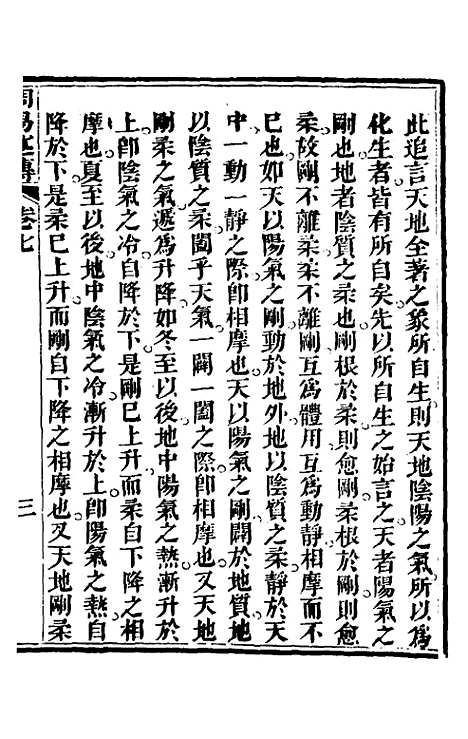 此追言天地全著之象所自生則天地陰陽之氣所以爲
化生者皆有所自矣先以所自生之始言之天者陽氣之
剛也地者陰質之柔也剛根於柔則愈剛柔根於剛則愈
柔故剛不離柔柔不離剛互爲體用互爲動靜相摩而不
已也如天以陽氣之剛動於地外地以陰質之柔靜於天
中一動一靜之際卽相摩也天以陽氣之剛闢於地質地
以陰質之柔闔乎天氣一闢一闔之際卽相摩也又天地
剛柔之氣遞爲升降如冬至以後地中陽氣之熱漸升於
上卽陰氣之冷自降於下是剛已上升而柔自下降之相
摩也夏至以後地中陰氣之冷漸升於上卽陽氣之熱自
降於下是柔已上升而剛自下降之相摩也又天地剛柔
周易 傳 卷七 三